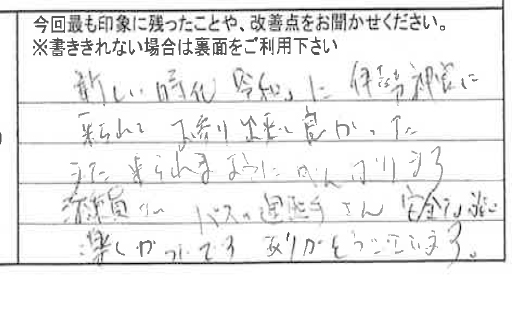 今回最も印象に残ったことや、改善点をお聞かせください。
※書ききれない場合は裏面をご利用下さい
新しい時代 令和に 伊勢神宮に
来られて お参り出来て良かった
また来られるようにがんばります
添乗員さん バスの運転手さん 安全で
楽しかったです ありがとうございます。